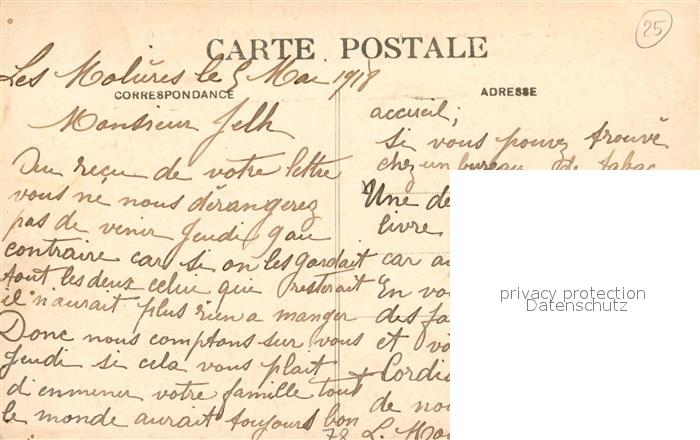 25
CARTE POSTALE
Les Molières le 5 Mai 1918
CORRESPONDANCE
ADRESSE
Monsieur
Au reçu de votre lettre
vous ne nous dérangerez
pas de venir Jeudi 9 au
contraire car si on les gardait
tout les deux celui que resterait
il n'aurait plus rien a manger
Donc nous comptons sur vous
Jeudi si cela vous plait
d'enmener votre famille tout
le monde aurait toujours bon
78
accueil;
si vous pouvez trouvé
chez un bureau de tabac
Une de
livre
car au
En vo
des fa
et vo
Cordia
de no
L. Mo
privacy protection
Datenschutz